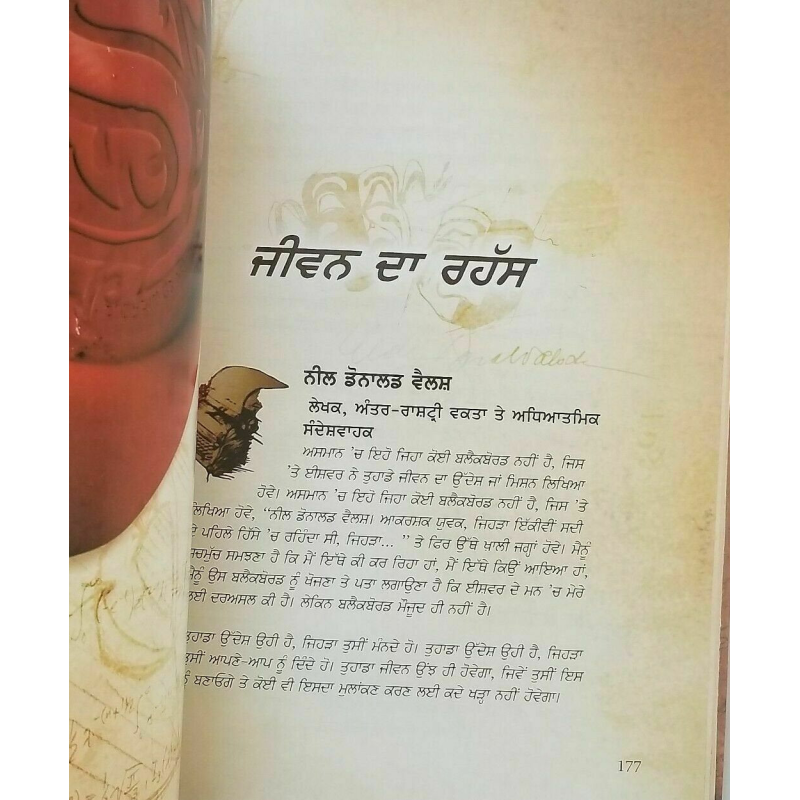 ਜੀਵਨ ਦਾ ਰਹੱਸ
ਨੀਲ ਡੋਨਾਲਡ ਵੈਲਸ਼
ਲੇਖਕ, ਅੰਤਰ-ਰਾਸ਼ਟ੍ਰੀ ਵਕਤਾ ਤੇ ਅਧਿਆਤਮਿਕ
ਸੰਦੇਸ਼ਵਾਹਕ
ਅਸਮਾਨ 'ਚ ਇਹੋ ਜਿਹਾ ਕੋਈ ਬਲੈਕਬੋਰਡ ਨਹੀਂ ਹੈ, ਜਿਸ
'ਤੇ ਈਸਵਰ ਨੇ ਤੁਹਾਡੇ ਜੀਵਨ ਦਾ ਉੱਦੇਸ ਜਾਂ ਮਿਸਨ ਲਿਖਿਆ
ਹੋਵੇ। ਅਸਮਾਨ 'ਚ ਇਹੋ ਜਿਹਾ ਕੋਈ ਬਲੈਕਬੋਰਡ ਨਹੀਂ ਹੈ, ਜਿਸ 'ਤੇ
ਲਿਖਿਆ ਹੋਵੇ, "ਨੀਲ ਡੋਨਾਲਡ ਵੈਲਸ। ਆਕਰਸ਼ਕ ਯੁਵਕ, ਜਿਹੜਾ ਇੱਕੀਵੀਂ ਸਦੀ
ਦੇ ਪਹਿਲੇ ਹਿੱਸੇ 'ਚ ਰਹਿੰਦਾ ਸੀ, ਜਿਹੜਾ... " ਤੇ ਫਿਰ ਉੱਥੇ ਖਾਲੀ ਜਗ੍ਹਾਂ ਹੋਵੇ। ਮੈਨੂੰ
ਸਚਮੁੱਚ ਸਮਝਣਾ ਹੈ ਕਿ ਮੈਂ ਇੱਥੇ ਕੀ ਕਰ ਰਿਹਾ ਹਾਂ, ਮੈਂ ਇੱਥੇ ਕਿਉਂ ਆਇਆ ਹਾਂ,
ਮੈਨੂੰ ਉਸ ਬਲੈਕਬੋਰਡ ਨੂੰ ਖੋਜਣਾ ਤੇ ਪਤਾ ਲਗਾਉਣਾ ਹੈ ਕਿ ਈਸਵਰ ਦੇ ਮਨ 'ਚ ਮੇਰੇ
ਲਈ ਦਰਅਸਲ ਕੀ ਹੈ। ਲੇਕਿਨ ਬਲੈਕਬੋਰਡ ਮੌਜੂਦ ਹੀ ਨਹੀਂ ਹੈ।
ਤੁਹਾਡਾ ਉੱਦੇਸ ਉਹੀ ਹੈ, ਜਿਹੜਾ ਤੁਸੀਂ ਮੰਨਦੇ ਹੋ। ਤੁਹਾਡਾ ਉੱਦੇਸ ਉਹੀ ਹੈ, ਜਿਹੜਾ
ਤੁਸੀਂ ਆਪਣੇ-ਆਪ ਨੂੰ ਦਿੰਦੇ ਹੋ। ਤੁਹਾਡਾ ਜੀਵਨ ਉਂਝ ਹੀ ਹੋਵੇਗਾ, ਜਿਵੇਂ ਤੁਸੀਂ ਇਸ
ਨੂੰ ਬਣਾਓਗੇ ਤੇ ਕੋਈ ਵੀ ਇਸਦਾ ਮੁਲਾਂਕਣ ਕਰਣ ਲਈ ਕਦੇ ਖੜ੍ਹਾ ਨਹੀਂ ਹੋਵੇਗਾ।
177